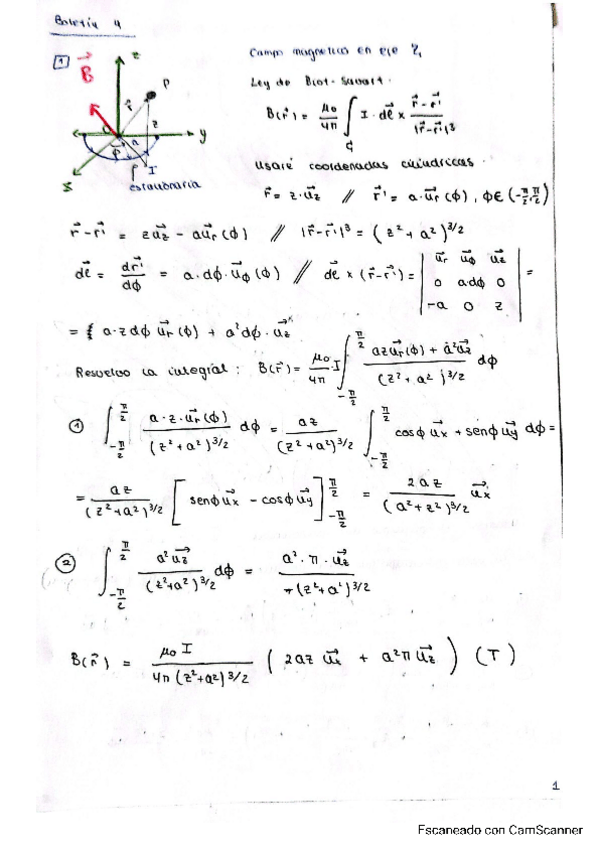 Boletín 4
1
B
z
P
y
x
a
z
I
estacionaria
Campo magnetico en eje Z,
Ley de Biot-Savart.
B(r⃗) = μ₀/4π ∫ I · dℓ⃗ × (r⃗ - r⃗')/|r⃗ - r⃗'|³
usaré coordenadas cilíndricas.
r⃗ = z·u⃗z // r⃗' = a·u⃗r(ϕ), ϕ∈(-π/2, π/2)
r⃗ - r⃗' = zu⃗z - au⃗r(ϕ) // |r⃗-r⃗'|³ = (z² + a²)^3/2
dℓ⃗ = dr⃗'/dϕ = a·dϕ·u⃗ϕ(ϕ) // dℓ⃗ × (r⃗-r⃗') = | u⃗r u⃗ϕ u⃗z | =
0 adϕ 0
-a 0 z
= a·zdϕ u⃗r(ϕ) + a²dϕ·u⃗z
Resuelvo la integral: B(r⃗) = μ₀/4π I ∫_{-π/2}^{π/2} (azu⃗r(ϕ) + a²u⃗z)/(z² + a²)^3/2 dϕ
① ∫_{-π/2}^{π/2} a·z·u⃗r(ϕ)/(z²+a²)^3/2 dϕ = az/(z²+a²)^3/2 ∫_{-π/2}^{π/2} cosϕ u⃗x + senϕ u⃗y dϕ =
= az/(z²+a²)^3/2 [senϕ u⃗x - cosϕ u⃗y]_{-π/2}^{π/2} = 2az/(a²+z²)^3/2 u⃗x
② ∫_{-π/2}^{π/2} a² u⃗z/(z²+a²)^3/2 dϕ = a²·π·u⃗z/(z²+a²)^3/2
B(r⃗) = μ₀ I/4π(z²+a²)^3/2 (2az u⃗x + a²π u⃗z) (T)
1
Escaneado con CamScanner